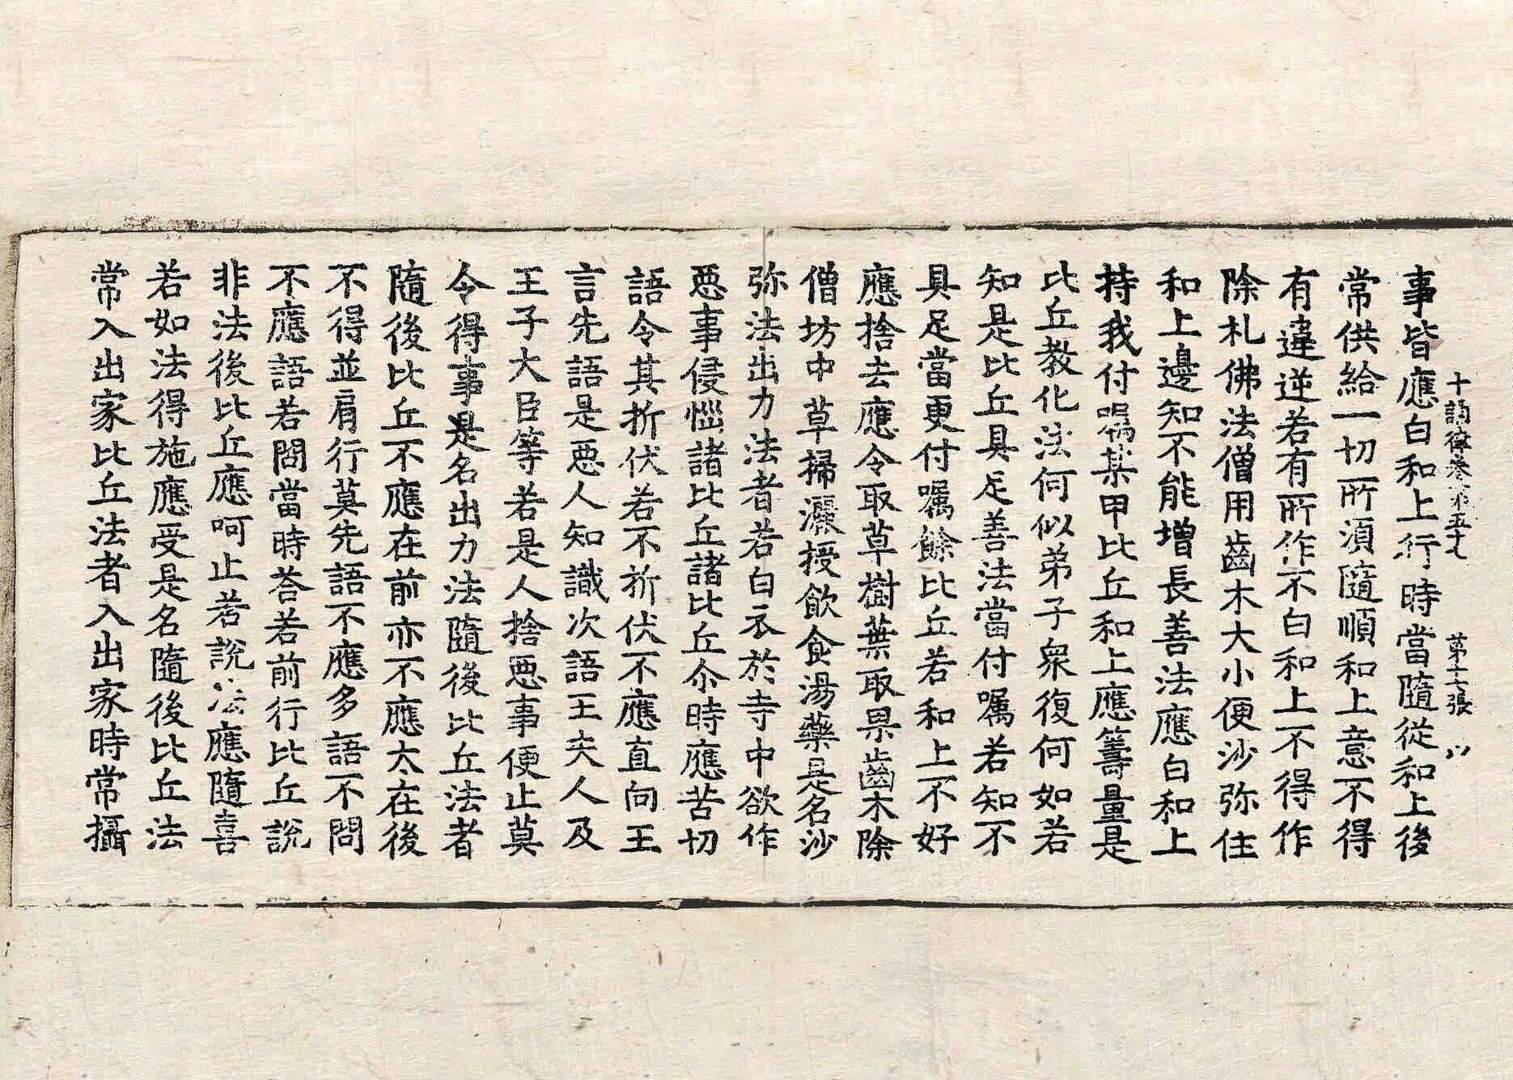 事皆應白和上行時當隨從和上後
十誦律卷第五十七 第十六張
常供給一切所湏隨順和上意不得
有違逆若有所作不白和上不得作
除礼佛法僧用齒木大小便沙弥住
和上邊知不能增長善法應白和上
持我付嘱某甲比丘和上應籌量是
比丘教化法何似弟子衆復何如若
知是比丘具足善法當付嘱若知不
具足當更付嘱餘比丘若和上不好
應捨去應令取草樹葉取果齒木除
僧坊中草掃灑授飲食湯藥是名沙
弥法出力法者若白衣於寺中欲作
惡事侵惱諸比丘諸比丘尒時應苦切
語令其折伏若不折伏不應直向王
言先語是惡人知識次語王夫人及
王子大臣等若是人捨惡事便止莫
令得事是名出力法隨後比丘法者
隨後比丘不應在前亦不應太在後
不得並肩行莫先語不應多語不問
不應語若問當時荅若前行比丘說
非法後比丘應呵止若說法應隨喜
若如法得施應受是名隨後比丘法
常入出家比丘法者入出家時常攝